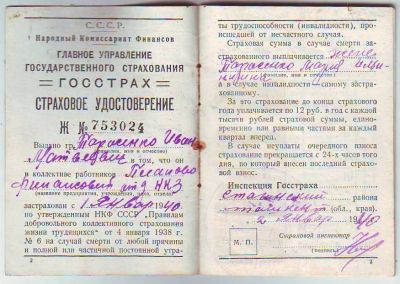 С.С.С.Р.
Народный Комиссариат Финансов
ГЛАВНОЕ УПРАВЛЕНИЕ
ГОСУДАРСТВЕННОГО СТРАХОВАНИЯ
ГОССТРАХ
СТРАХОВОЕ УДОСТОВЕРЕНИЕ
Ж № 753024
Выдано гр. Тарасенко Иван
(фамилия, имя и отчество)
в том, что он
в коллективе работников Планово
финансовый отд НКЗ
застрахован с 1 январ 1940
по утвержденным НКФ СССР „Правилам
добровольного коллективного страхования
жизни трудящихся" от 4 января 1938 г.
№ 6 на случай смерти от любой причины
и полной или частичной постоянной утра-
2
ты трудоспособности (инвалидности), прои-
шедшей от несчастного случая.
Страховая сумма в случае смерти за-
страхованного выплачивается жене
Тарасенко Мария
(фамилия, имя и отчество)
а в случае инвалидности — самому застра-
хованному.
За это страхование до конца страхового
года уплачивается по 12 руб. в год с каждой
тысячи рублей страховой суммы, едино-
временно или равными частями за каждый
квартал вперед.
В случае неуплаты очередного взноса
страхование прекращается с 24-х часов того
дня, по который внесен последний страхо-
вой взнос.
Инспекция Госстраха
Сталинский района
Ташкент (обл., края).
2 январ 1940
М. П.
Страховой инспектор
3